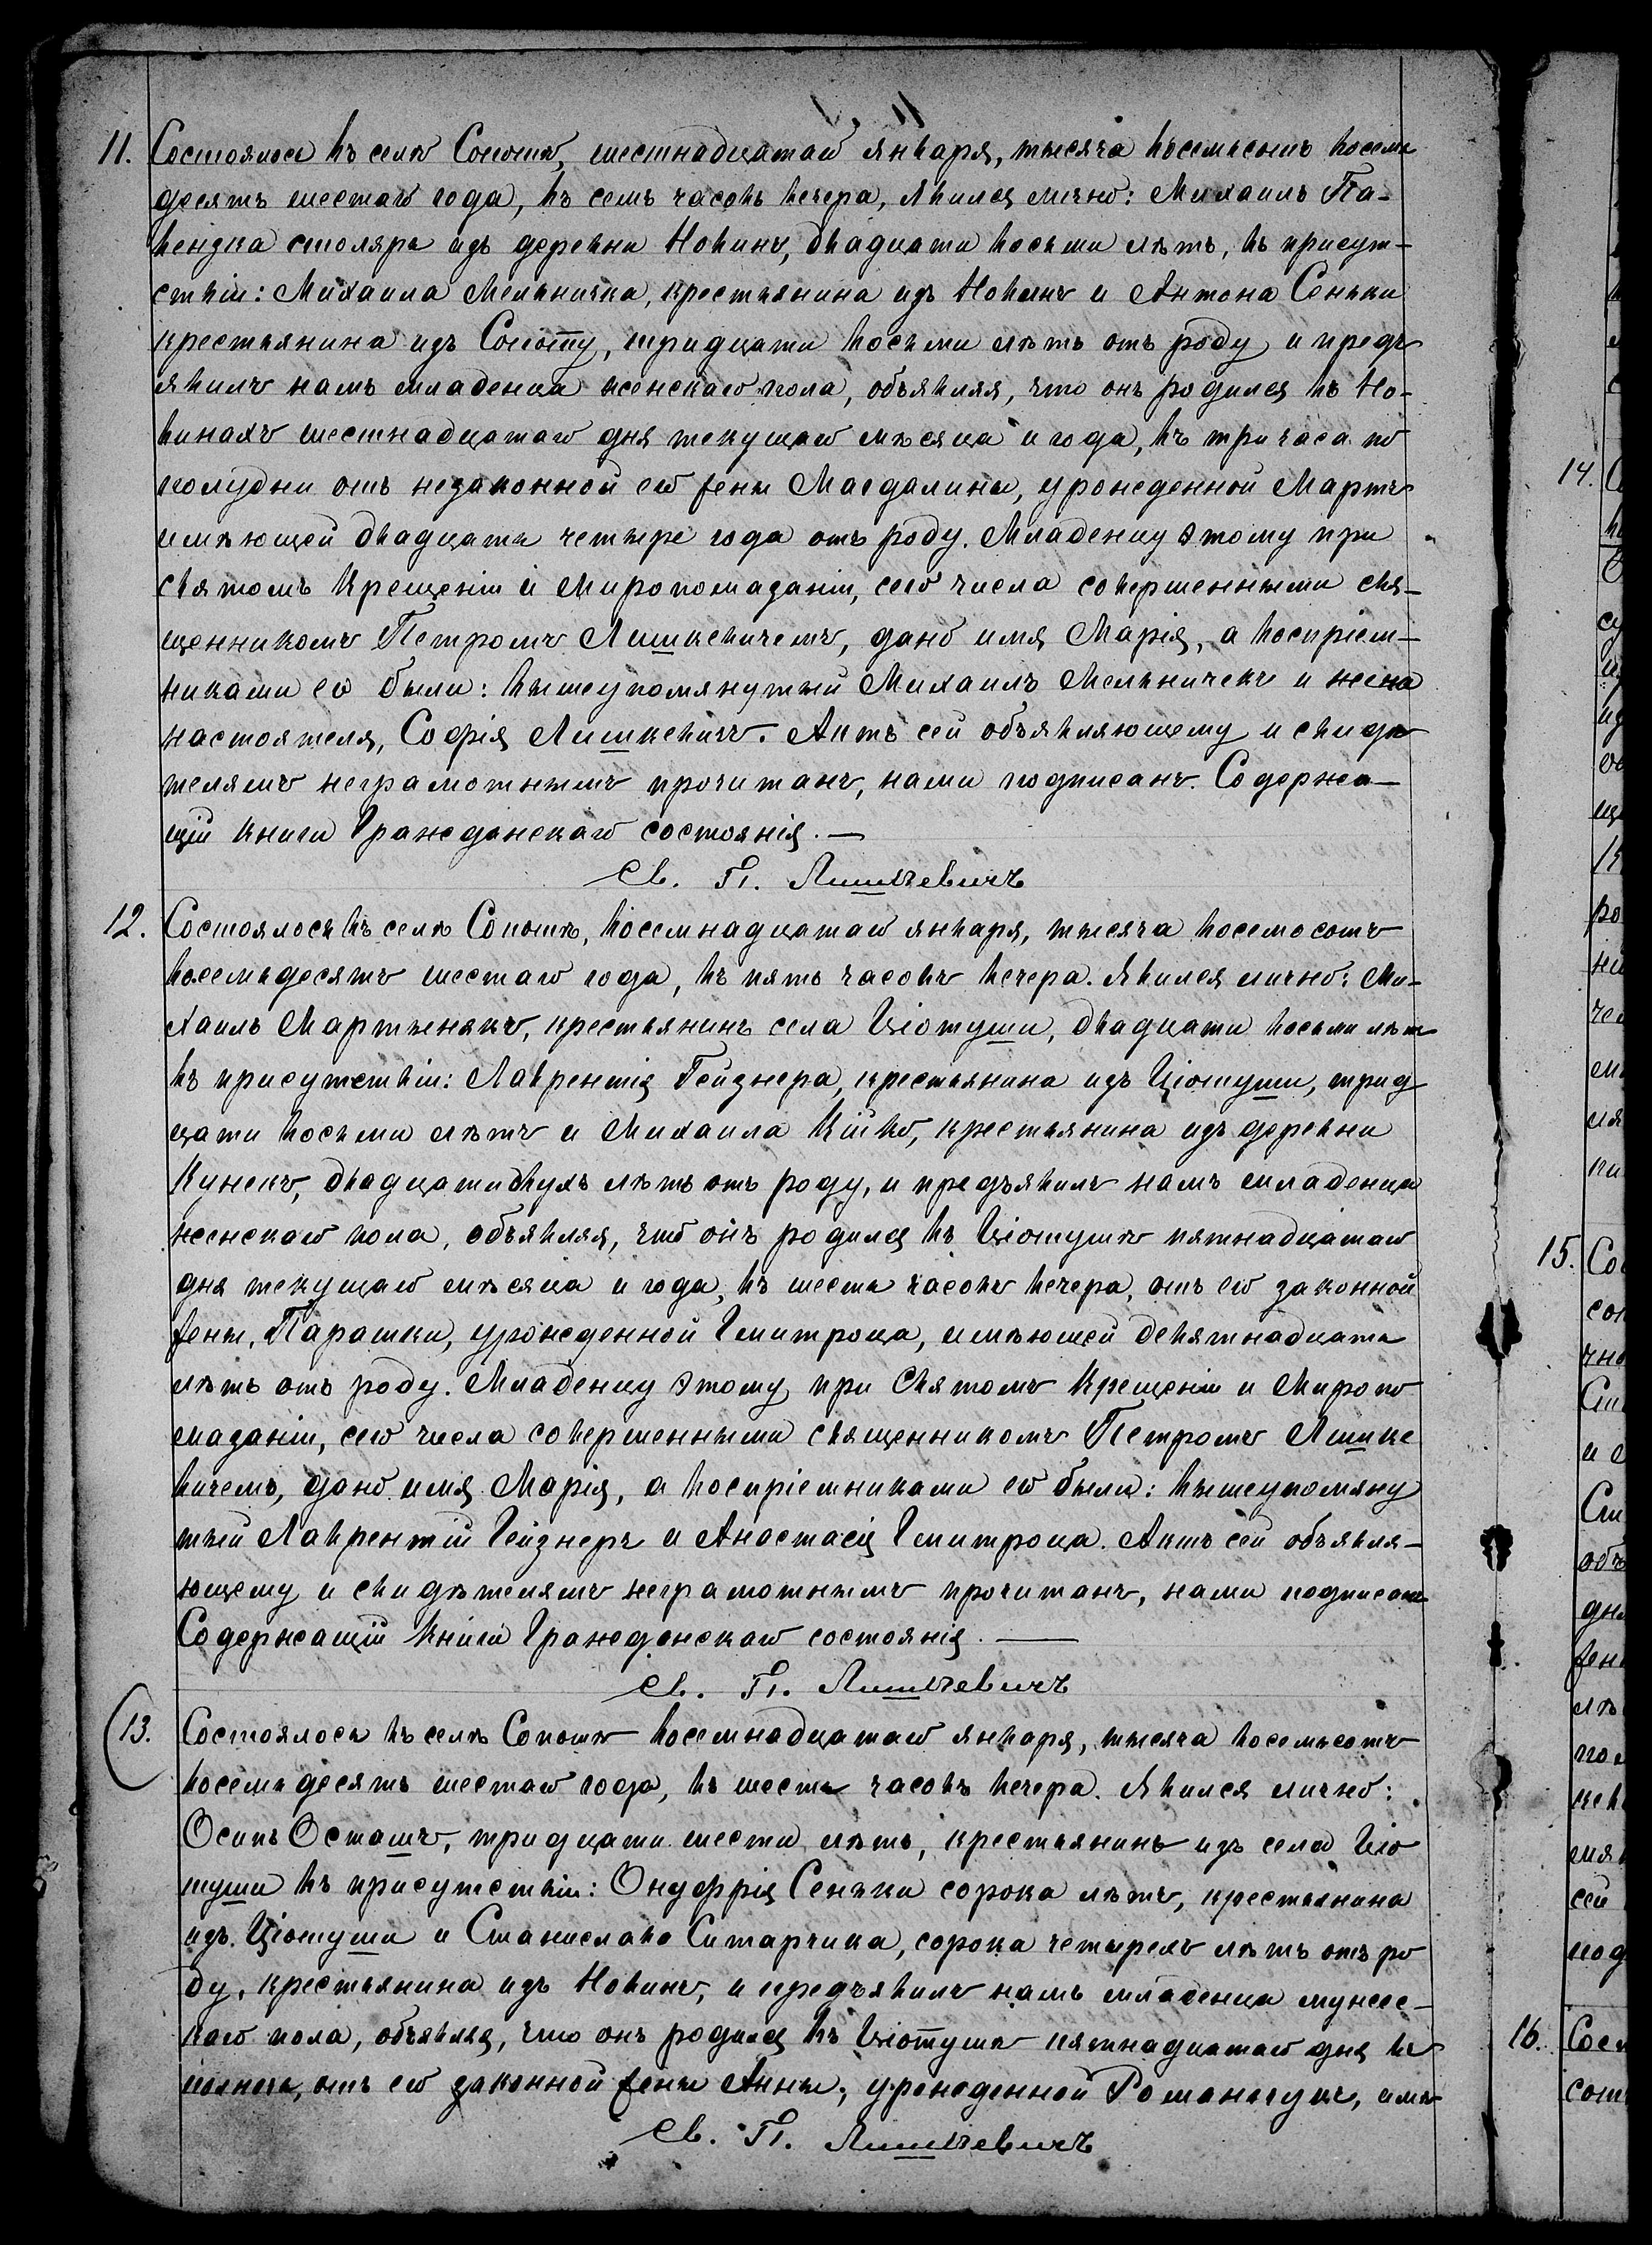 11. Состоялось въ селѣ Сопотѣ, шестнадцатаго января, тысяча восемьсотъ восемь
десятъ шестаго года, въ семь часовъ вечера, Явился лично: Михаилъ Па-
вензка столяръ изъ деревни Новинъ, двадцати восьми лѣтъ, въ присут-
ствіи: Михаила Мельничка, крестьянина изъ Новинъ и Антона Сеньки
крестьянина изъ Сопоту, тридцати восьми лѣтъ отъ роду и предъ
явилъ намъ младенца женскаго пола, объявляя, что онъ родился въ Но-
винахъ шестнадцатаго дня текущаго мѣсяца и года, въ три часа по
полудни отъ незаконной его жены Магдалины, урожденной Мартъ
имѣющей двадцать четыре года отъ роду. Младенцу этому при
святомъ Крещеніи и Миропомазаніи, сего числа совершенными свя-
щенникомъ Петромъ Лишкевичемъ, дано имя Марія, а воспріем-
никами его были: вышеупомянутый Михаилъ Мельничекъ и жена
настоятеля, Софія Лишкевичъ. Актъ сей объявляющему и свидѣ
телямъ неграмотнымъ прочитанъ, нами подписанъ. Содержа-
щій книги Гражданскаго состоянія. —
Св. П. Лишкевичъ
12. Состоялось въ селѣ Сопотѣ, восемнадцатаго января, тысяча восемьсотъ
восемьдесятъ шестаго года, въ пять часовъ вечера. Явился лично: Ми-
хаилъ Мартынякъ, крестьянинъ села Цiотуши, двадцати восьми лѣтъ
въ присутствіи: Лаврентія Гейзнера, крестьянина изъ Цiотуши, трид
цати восьми лѣтъ и Михаила Кійко, крестьянина изъ деревни
Кунекъ, двадцати двухъ лѣтъ отъ роду, и предъявилъ намъ младенца
женскаго пола, объявляя, что онъ родился въ Цiотушѣ пятнадцатаго
дня текущаго мѣсяца и года, въ шесть часовъ вечера, отъ его законной
жены, Парашки, урожденной Гмитроца, имѣющей девятнадцать
лѣтъ отъ роду. Младенцу этому, при Святомъ Крещеніи и Миропо
мазаніи, сего числа совершенными священникомъ Петромъ Лишке
вичемъ, дано имя Марія, а воспріемниками его были: вышеупомяну
тый Лаврентій Гейзнеръ и Анастасія Гмитроца. Актъ сей объявля-
ющему и свидѣтелямъ неграмотнымъ прочитанъ, нами подписанъ
Содержащій книги Гражданскаго состоянія. —
Св. П. Лишкевичъ
13. Состоялось въ селѣ Сопотѣ восемнадцатаго января, тысяча восемьсотъ
восемьдесятъ шестаго года, въ шесть часовъ вечера. Явился лично:
Осипъ Осташъ, тридцати шести лѣтъ, крестьянинъ изъ села Цiо
туши въ присутствіи: Онуфрія Сеньки сорока лѣтъ, крестьянина
изъ Цiотуши и Станислава Ситарчика, сорока четырехъ лѣтъ отъ ро
ду, крестьянина изъ Новинъ, и предъявилъ намъ младенца мужес-
каго пола, объявляя, что онъ родился въ Цiотушѣ пятнадцатаго дня въ
полночь, отъ его законной жены Анны, урожденной Романчукъ, имѣ
Св. П. Лишкевичъ
14.
15.
16.